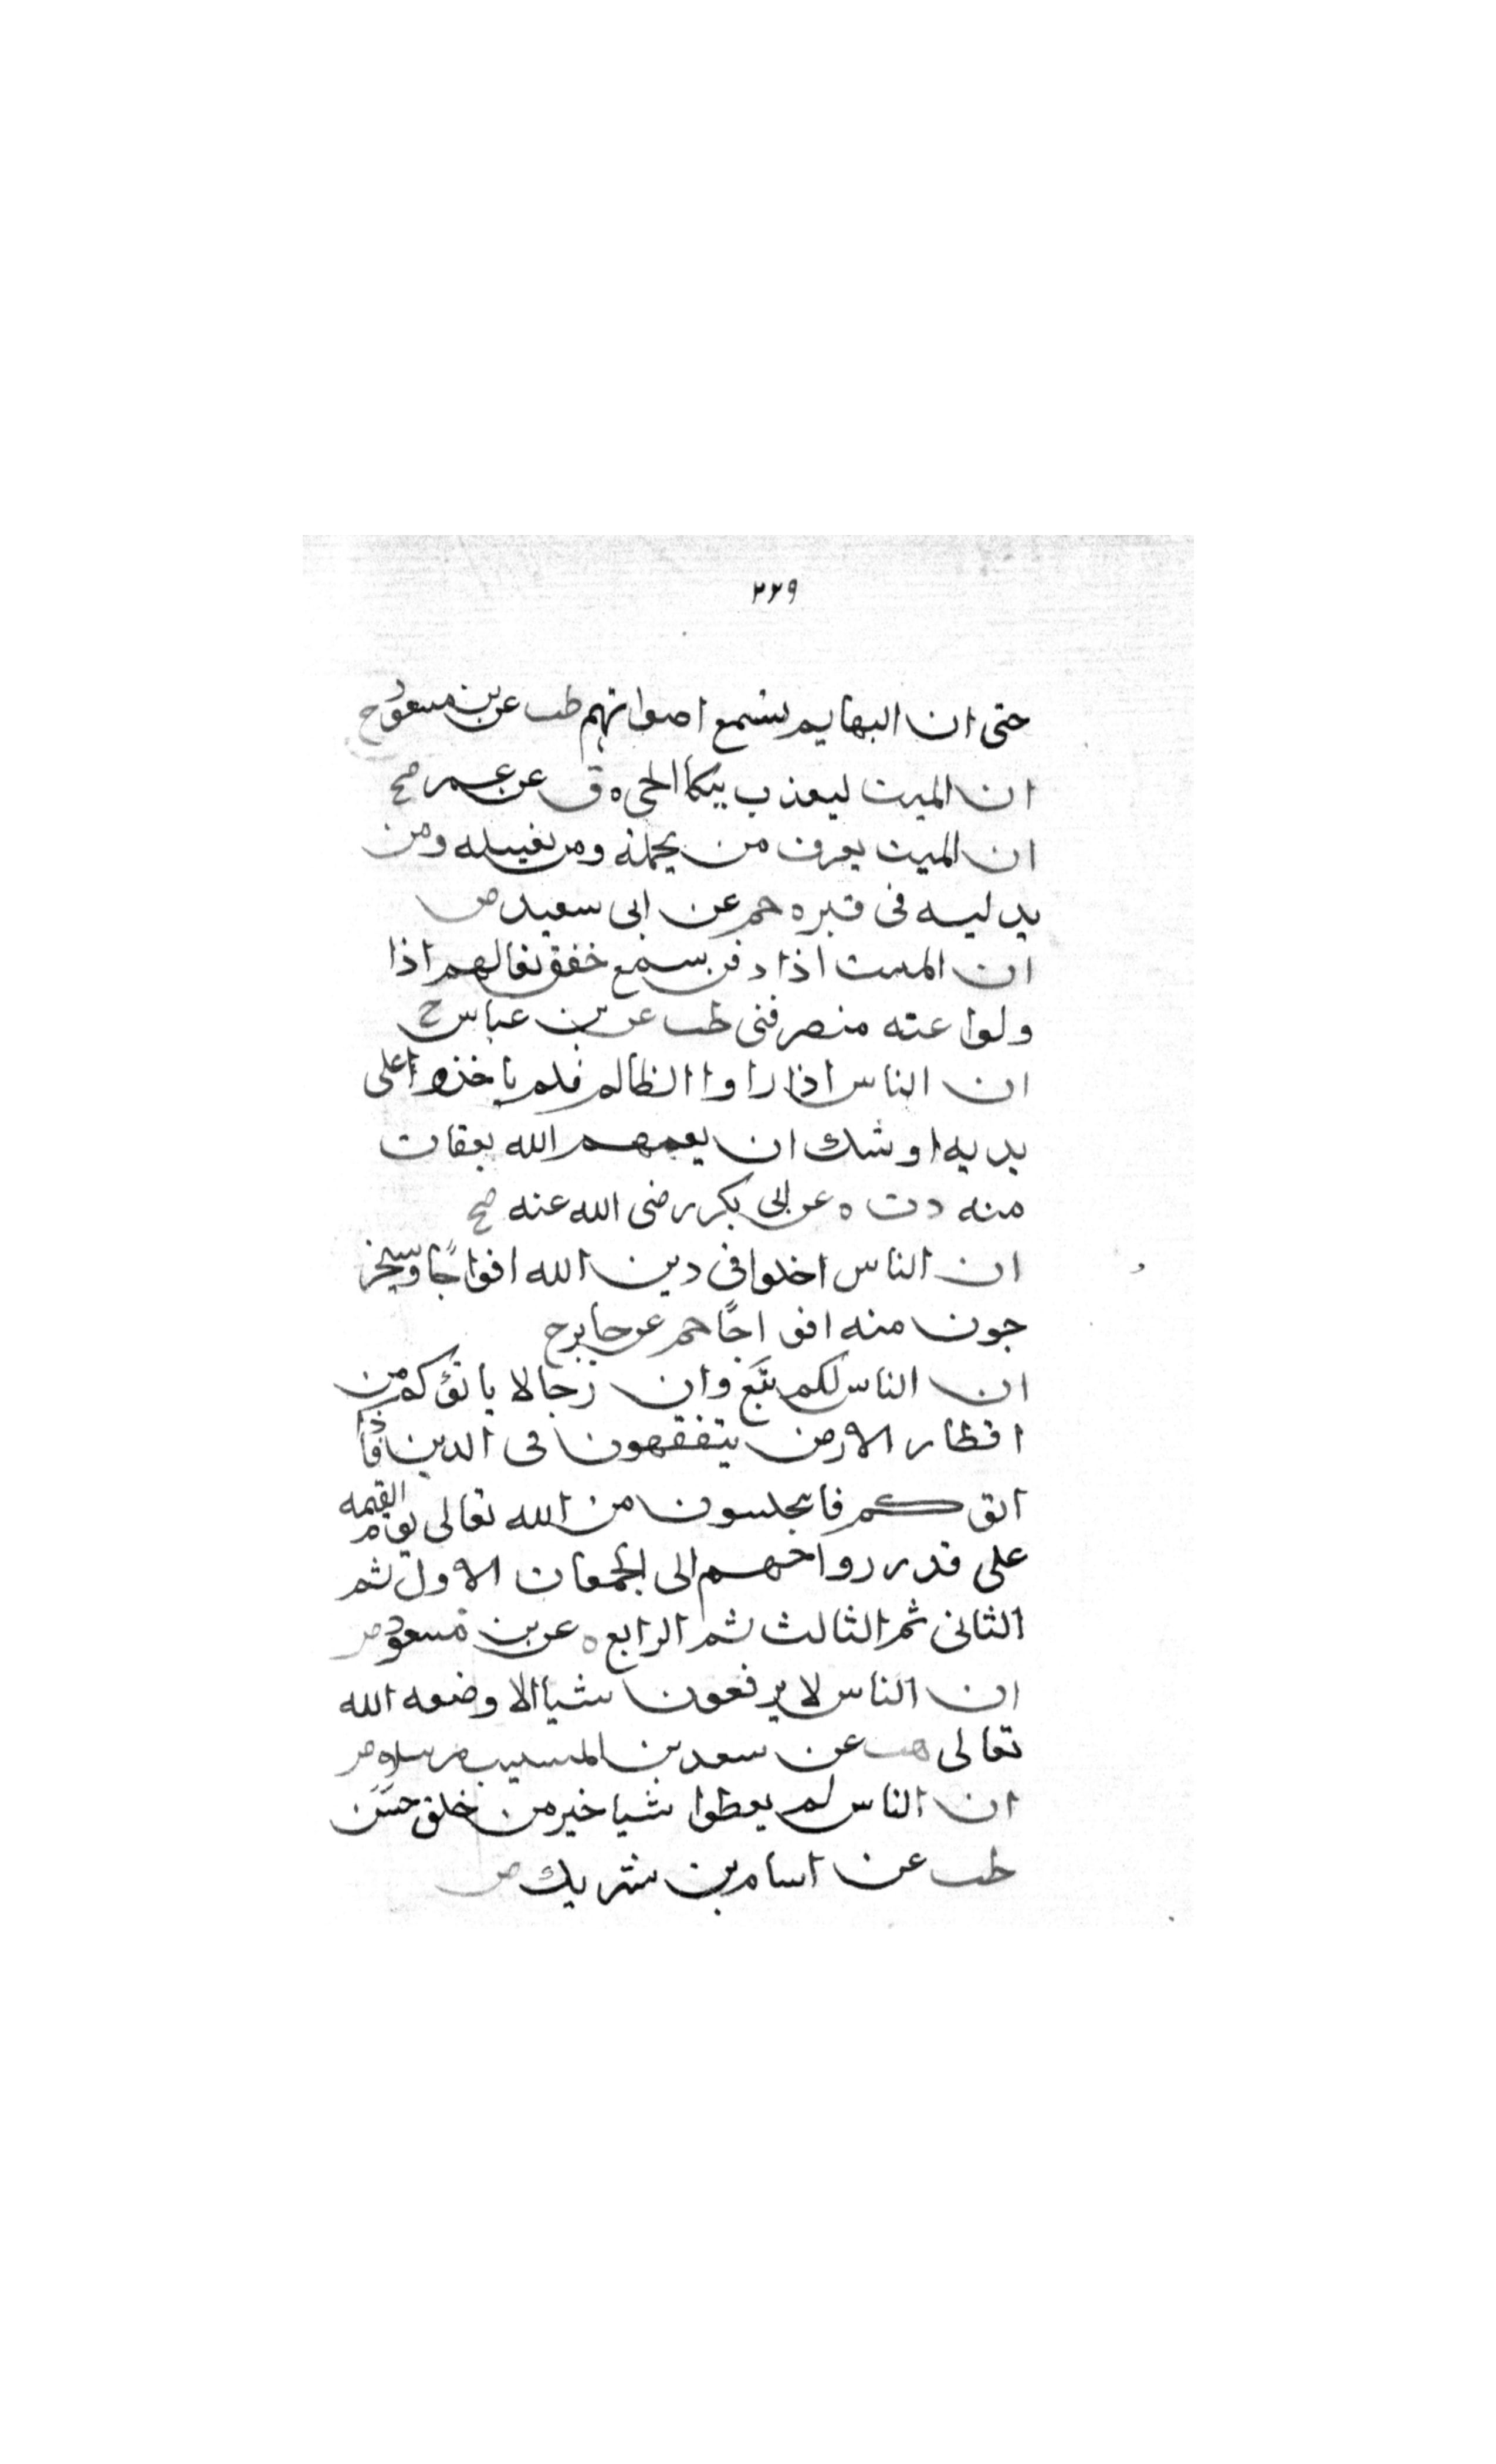 ٢٢٩
حتى ان البهايم تسمع اصواتهم طب عن بن مسعود ح
ان الميت ليعذب ببكا الحى ه ق عن عمر صح
ان الميت يعرف من يحمله ومن يغسله ومن
يدليه فى قبره حم عن ابى سعيد ض
ان الميت اذا دفن يسمع خفق نعالهم اذا
ولوا عنه منصرفنى طب عن بن عباس ح
ان الناس اذا راوا الظالم فلم ياخذوا على
يديه اوشك ان يعمهم الله بعقات
منه د ت ه عن ابى بكر رضى الله عنه صح
ان الناس اخلوا فى دين الله افواجًا وسيخر
جون منه افواجًا حم عن جابر ح
ان الناس لكم تبَع وان رجالا ياتوكم من
اقطار الارض يتفقهون فى الدين فاذا
اتو كم فا يجلسون من الله تعالى يوم القيمه
على قدر رواحهم الى الجمعات الاول ثم
الثانى ثم الثالث ثم الرابع ه عن بن مسعود ض
ان الناس لا يرفعون شيا الا وضعه الله
تعالى هب عن سعد بن المسيب مرسلا ض
ان الناس لم يعطوا شيا خير من خلق حسَن
طب عن اسام بن شريك ض